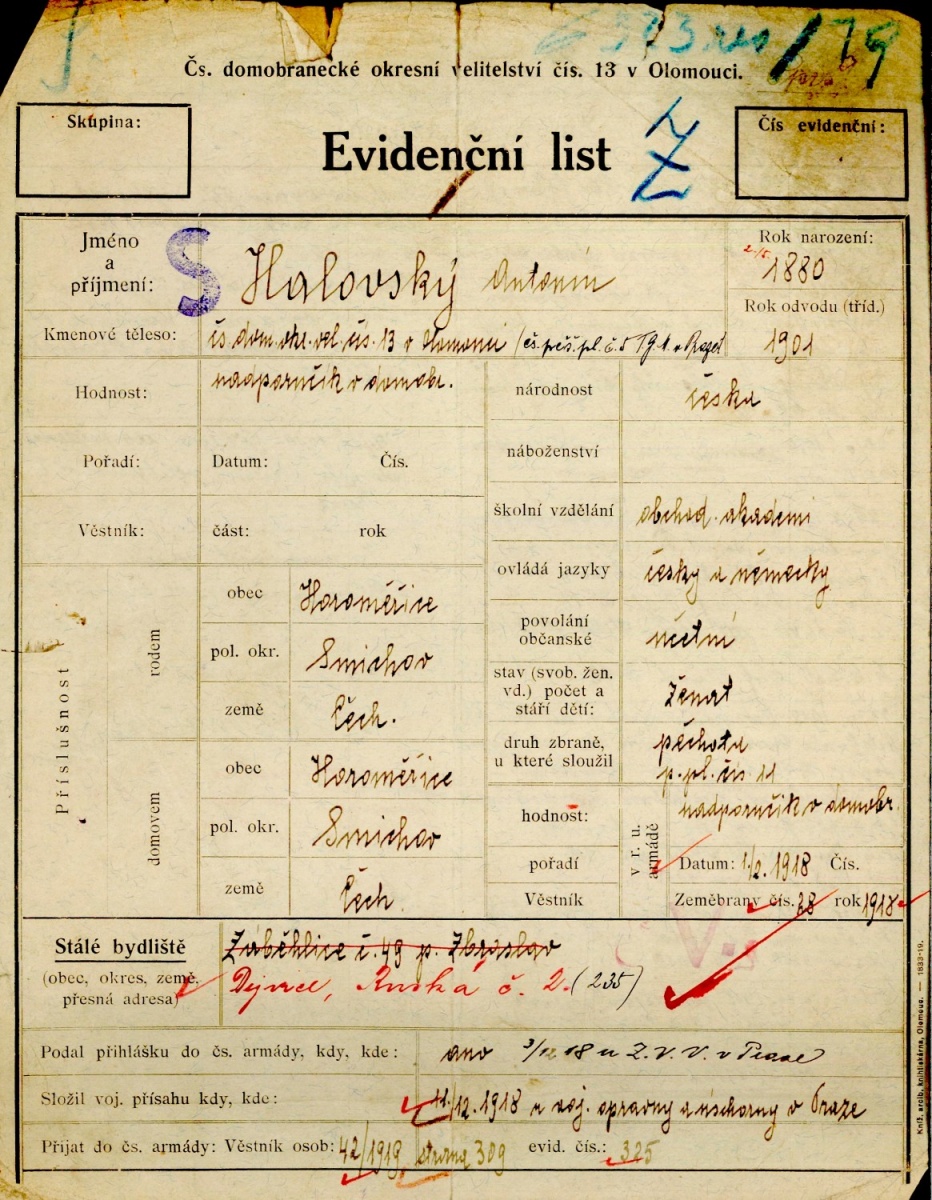 373 res/19
Čs. domobranecké okresní velitelství čís. 13 v Olomouci.
Skupina:
Evidenční list
Z
Čís evidenční:
Jméno a příjmení: S Halovský Antonín
Rok narození: 1880
Rok odvodu (tříd.) 1901
Kmenové těleso: čs. dom. okr. vel. čís. 13 v Olomouci (čs. pěš. pl. č. 5 TGM. v Praze)
Hodnost: nadporučík v domobr.
národnost česká
Pořadí: Datum: Čís.
náboženství
Věstník: část: rok
školní vzdělání obchod. akademi
ovládá jazyky česky a německy
povolání občanské účetní
stav (svob. žen. vd.) počet a stáří dětí: ženat
druh zbraně, u které sloužil pěchota p. pl. čís. 11
Příslušnost
rodem
obec Horoměřice
pol. okr. Smíchov
země Čech.
domovem
obec Horoměřice
pol. okr. Smíchov
země Čech.
v r. u. armádě
hodnost: nadporučík v domobr.
pořadí Datum: 1/2. 1918 Čís.
Věstník Zeměbrany čís. 38 rok 1918
Stálé bydliště
(obec, okres, země, přesná adresa)
Záběhlice č. 49 p. Zbraslav
Dejvice, Ruská č. 2. (235)
Podal přihlášku do čs. armády, kdy, kde: ano 3/11 18 u Z. V. V. v Praze
Složil voj. přísahu kdy, kde: 11/12. 1918 u voj. opravny a úschovny v Praze
Přijat do čs. armády: Věstník osob: 42/1919 strana 309 evid. čís.: 325
Kníž. arcib. knihtiskárna, Olomouc. — 1833-19.